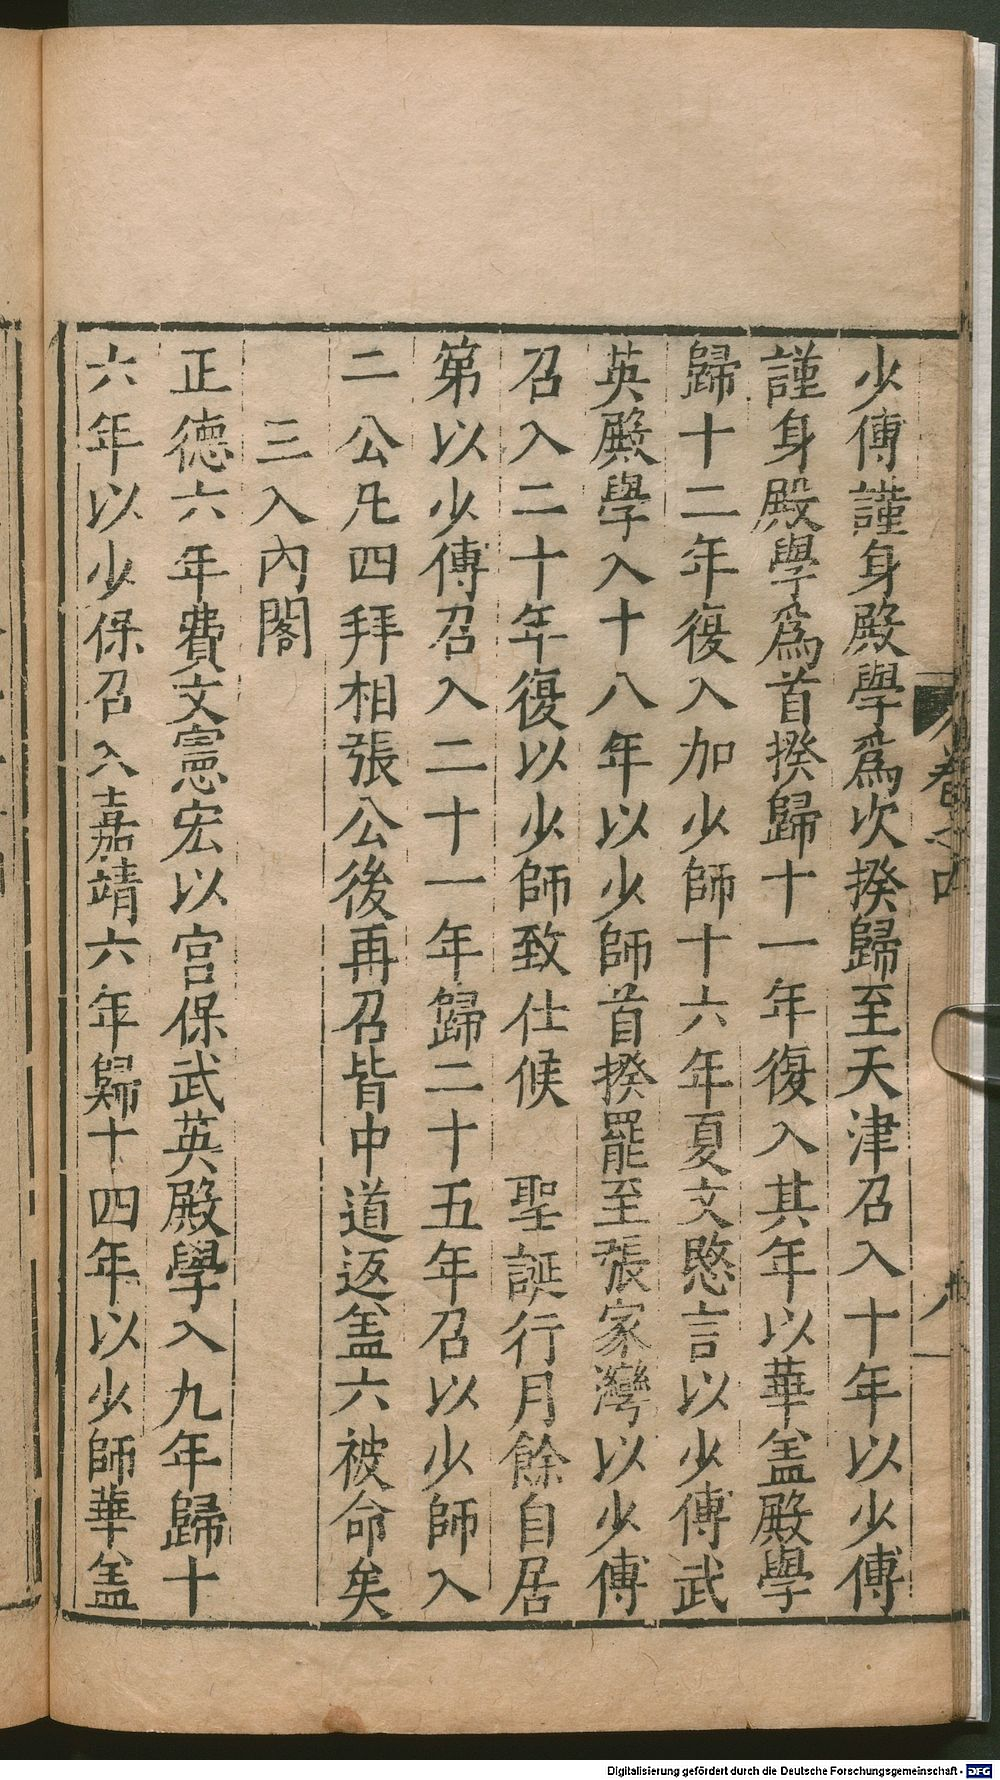 少傅謹身殿學爲次揆歸至天津召入十年以少傅
謹身殿學爲首揆歸十一年復入其年以華盖殿學
歸十二年復入加少師十六年夏文愍言以少傅武
英殿學入十八年以少師首揆罷至張家灣以少傅
召入二十年復以少師致仕候　聖誕行月餘自居
第以少傅召入二十一年歸二十五年召以少師入
二公凡四拜相張公後再召皆中道返盖六被命矣
三入內閣
正德六年費文憲宏以宮保武英殿學入九年歸十
六年以少保召入嘉靖六年歸十四年以少師華盖
卷之四
Digitalisierung gefördert durch die Deutsche Forschungsgemeinschaft - DFG